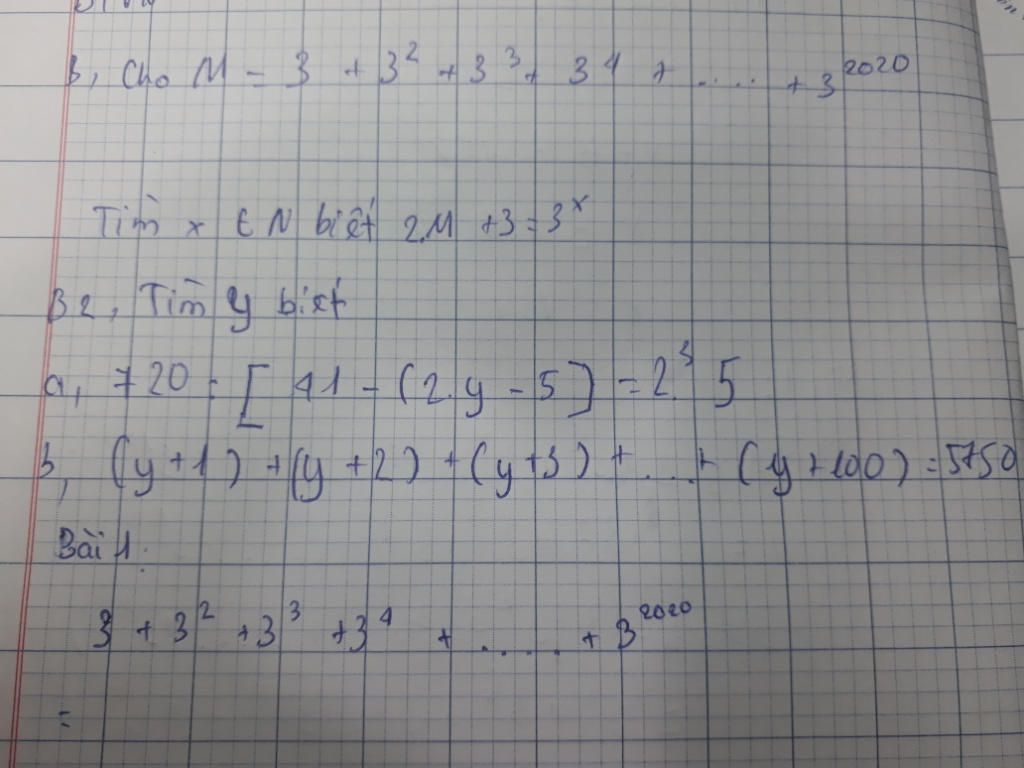 b, Cho M = 3 + 3² + 3³ + 3⁴ + ..... + 3²⁰²⁰
Tìm x ∈ N biết 2.M + 3 = 3ˣ
B2, Tìm y biết
a, 720 : [ 41 - (2.y - 5] = 2.³ 5
b, (y + 1) + (y + 2) + (y + 3) + .... + (y + 100) = 5750
Bài 1:
3 + 3² + 3³ + 3⁴ + ...... + 3²⁰²⁰
=